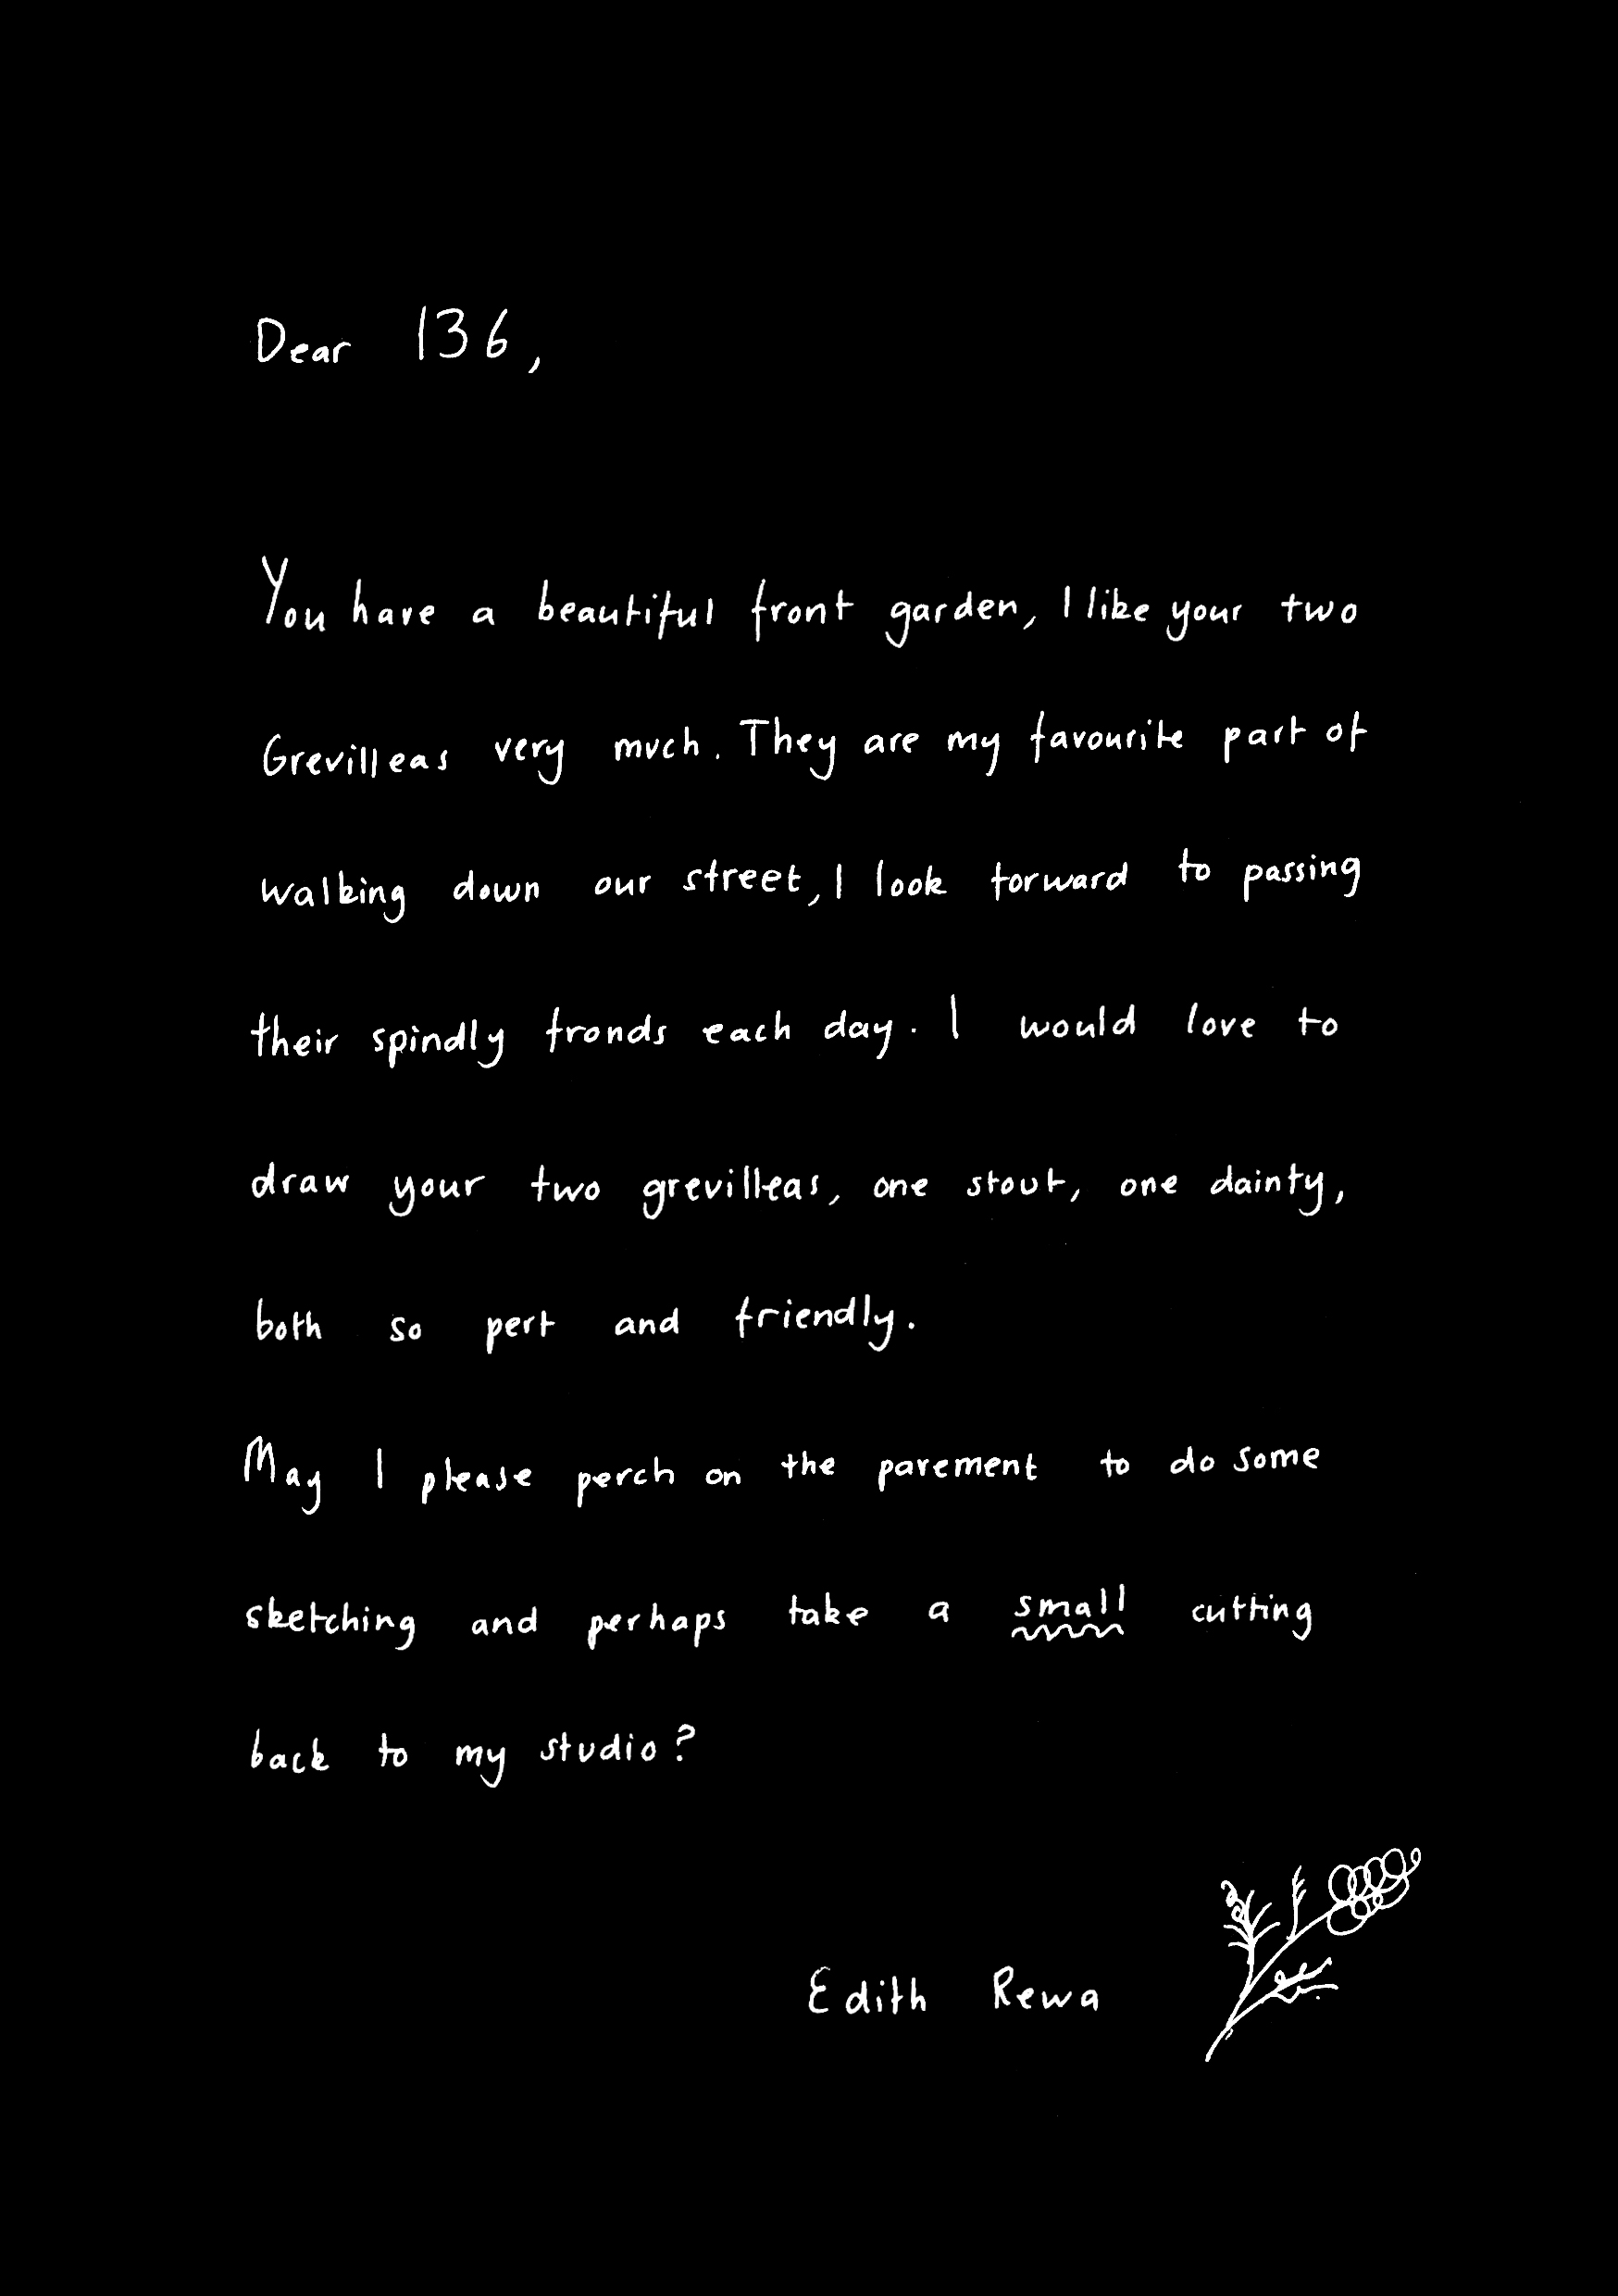 Dear 136,
You have a beautiful front garden, I like your two
Grevilleas very much. They are my favourite part of
walking down our street, I look forward to passing
their spindly fronds each day. I would love to
draw your two grevilleas, one stout, one dainty,
both so pert and friendly.
May I please perch on the pavement to do some
sketching and perhaps take a small cutting
back to my studio?
Edith Rewa